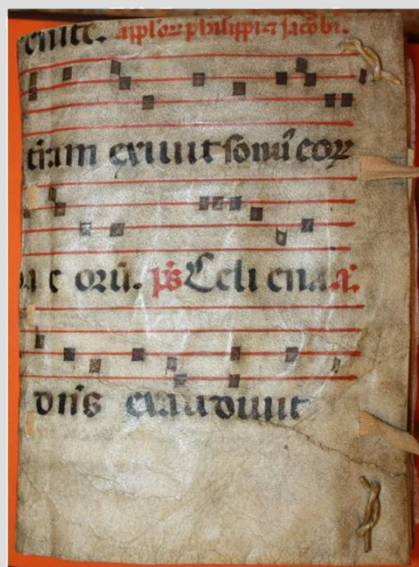 enite. apl'oꝝ philippi ⁊ jacobi.
tram exiuit sonū eoꝝ
orū. ps Celi ena a.
dn̄s exaudiuit